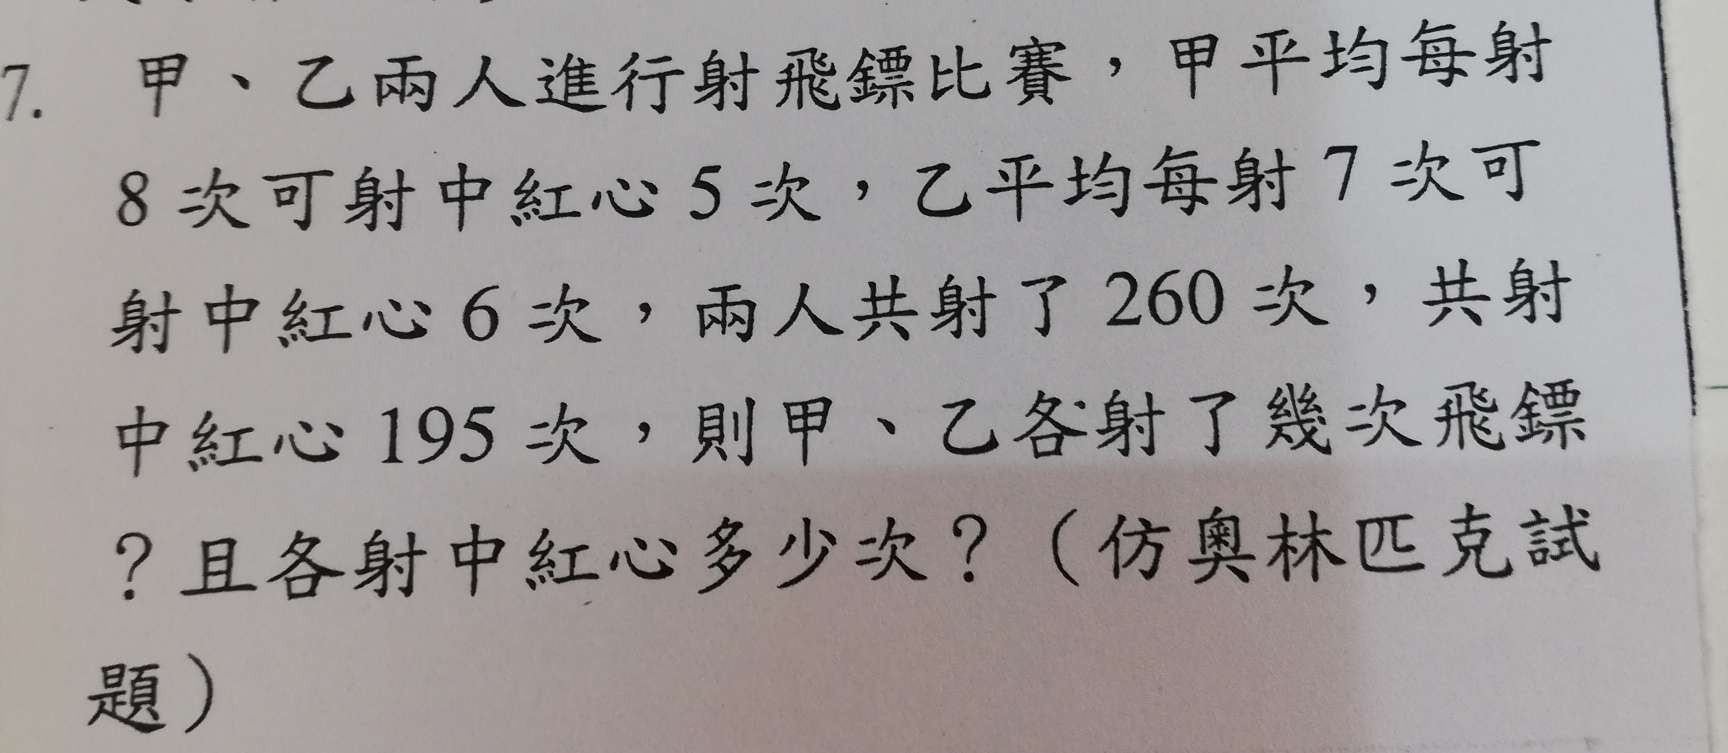 7. 甲、乙兩人進行射飛鏢比賽，甲平均每射
8 次可射中紅心 5 次，乙平均每射 7 次可
射中紅心 6 次，兩人共射了 260 次，共射
中紅心 195 次，則甲、乙各射了幾次飛鏢
？且各射中紅心多少次？（仿奧林匹克試
題）